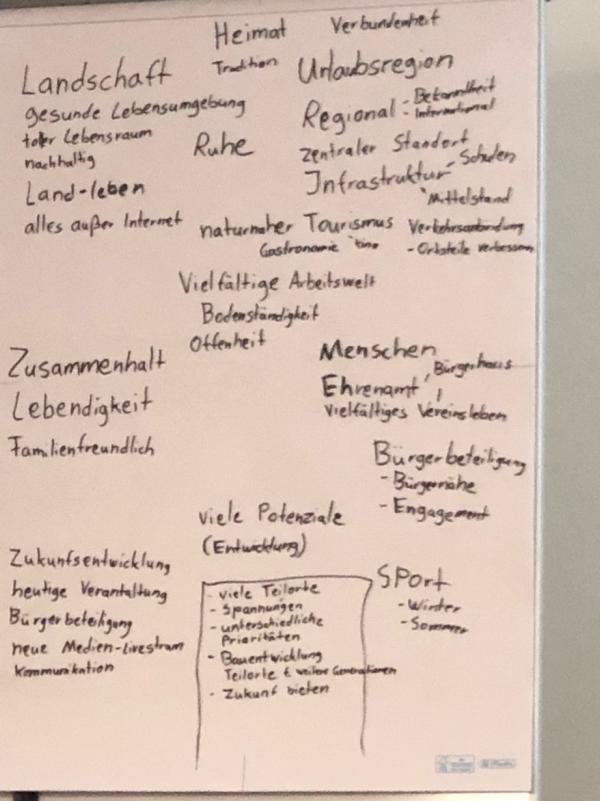 Heimat
Verbundenheit
Tradition
Landschaft
gesunde Lebensumgebung
toller Lebensraum
nachhaltig
Land-leben
alles außer Internet
Ruhe
Urlaubsregion
Regional - Bekanntheit
- International
zentraler Standort
Infrastruktur - Schulen
Mittelstand
naturnaher Tourismus
Gastronomie
Verkehrsanbindung
- Ortsteile verbessern
Vielfältige Arbeitswelt
Bodenständigkeit
Offenheit
Zusammenhalt
Lebendigkeit
Familienfreundlich
Menschen
Bürgerhaus
Ehrenamt
Vielfältiges Vereinsleben
Bürgerbeteiligung
- Bürgernähe
- Engagement
viele Potenziale
(Entwicklung)
Zukunfsentwicklung
heutige Verantaltung
Bürgerbeteiligung
neue Medien-livestram
Kommunikation
- viele Teilorte
- Spannungen
- unterschiedliche
Prioritäten
- Bauentwicklung
Teilorte f. weitere Generationen
- Zukunf bieten
Sport
- Winter
- Sommer